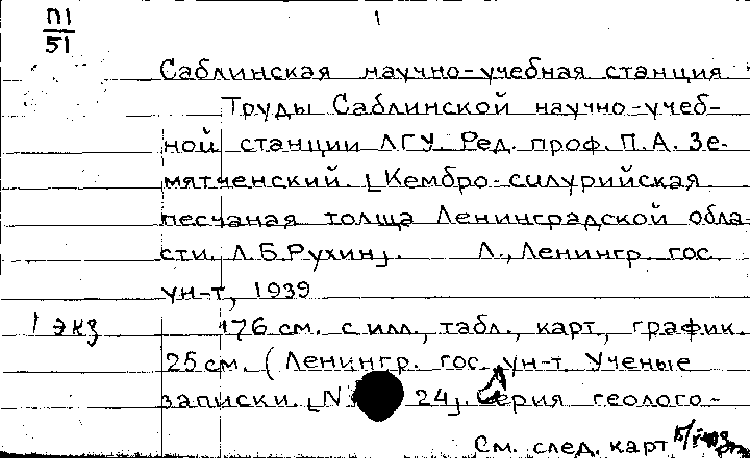 П1
51
1
Саблинская научно-учебная станция
Труды Саблинской научно-учеб-
ной станции ЛГУ. Ред. проф. П.А. Зе-
мятченский. [Кембро-силурийская
песчаная толща Ленинградской обла-
сти. Л.Б.Рухин]. Л., Ленингр. гос.
ун-т, 1939
1 экз 176 см. с илл., табл., карт, график.
25 см. (Ленингр. гос. ун-т. Ученые
записки. [N 24]. Серия геолого-
См. след. карт